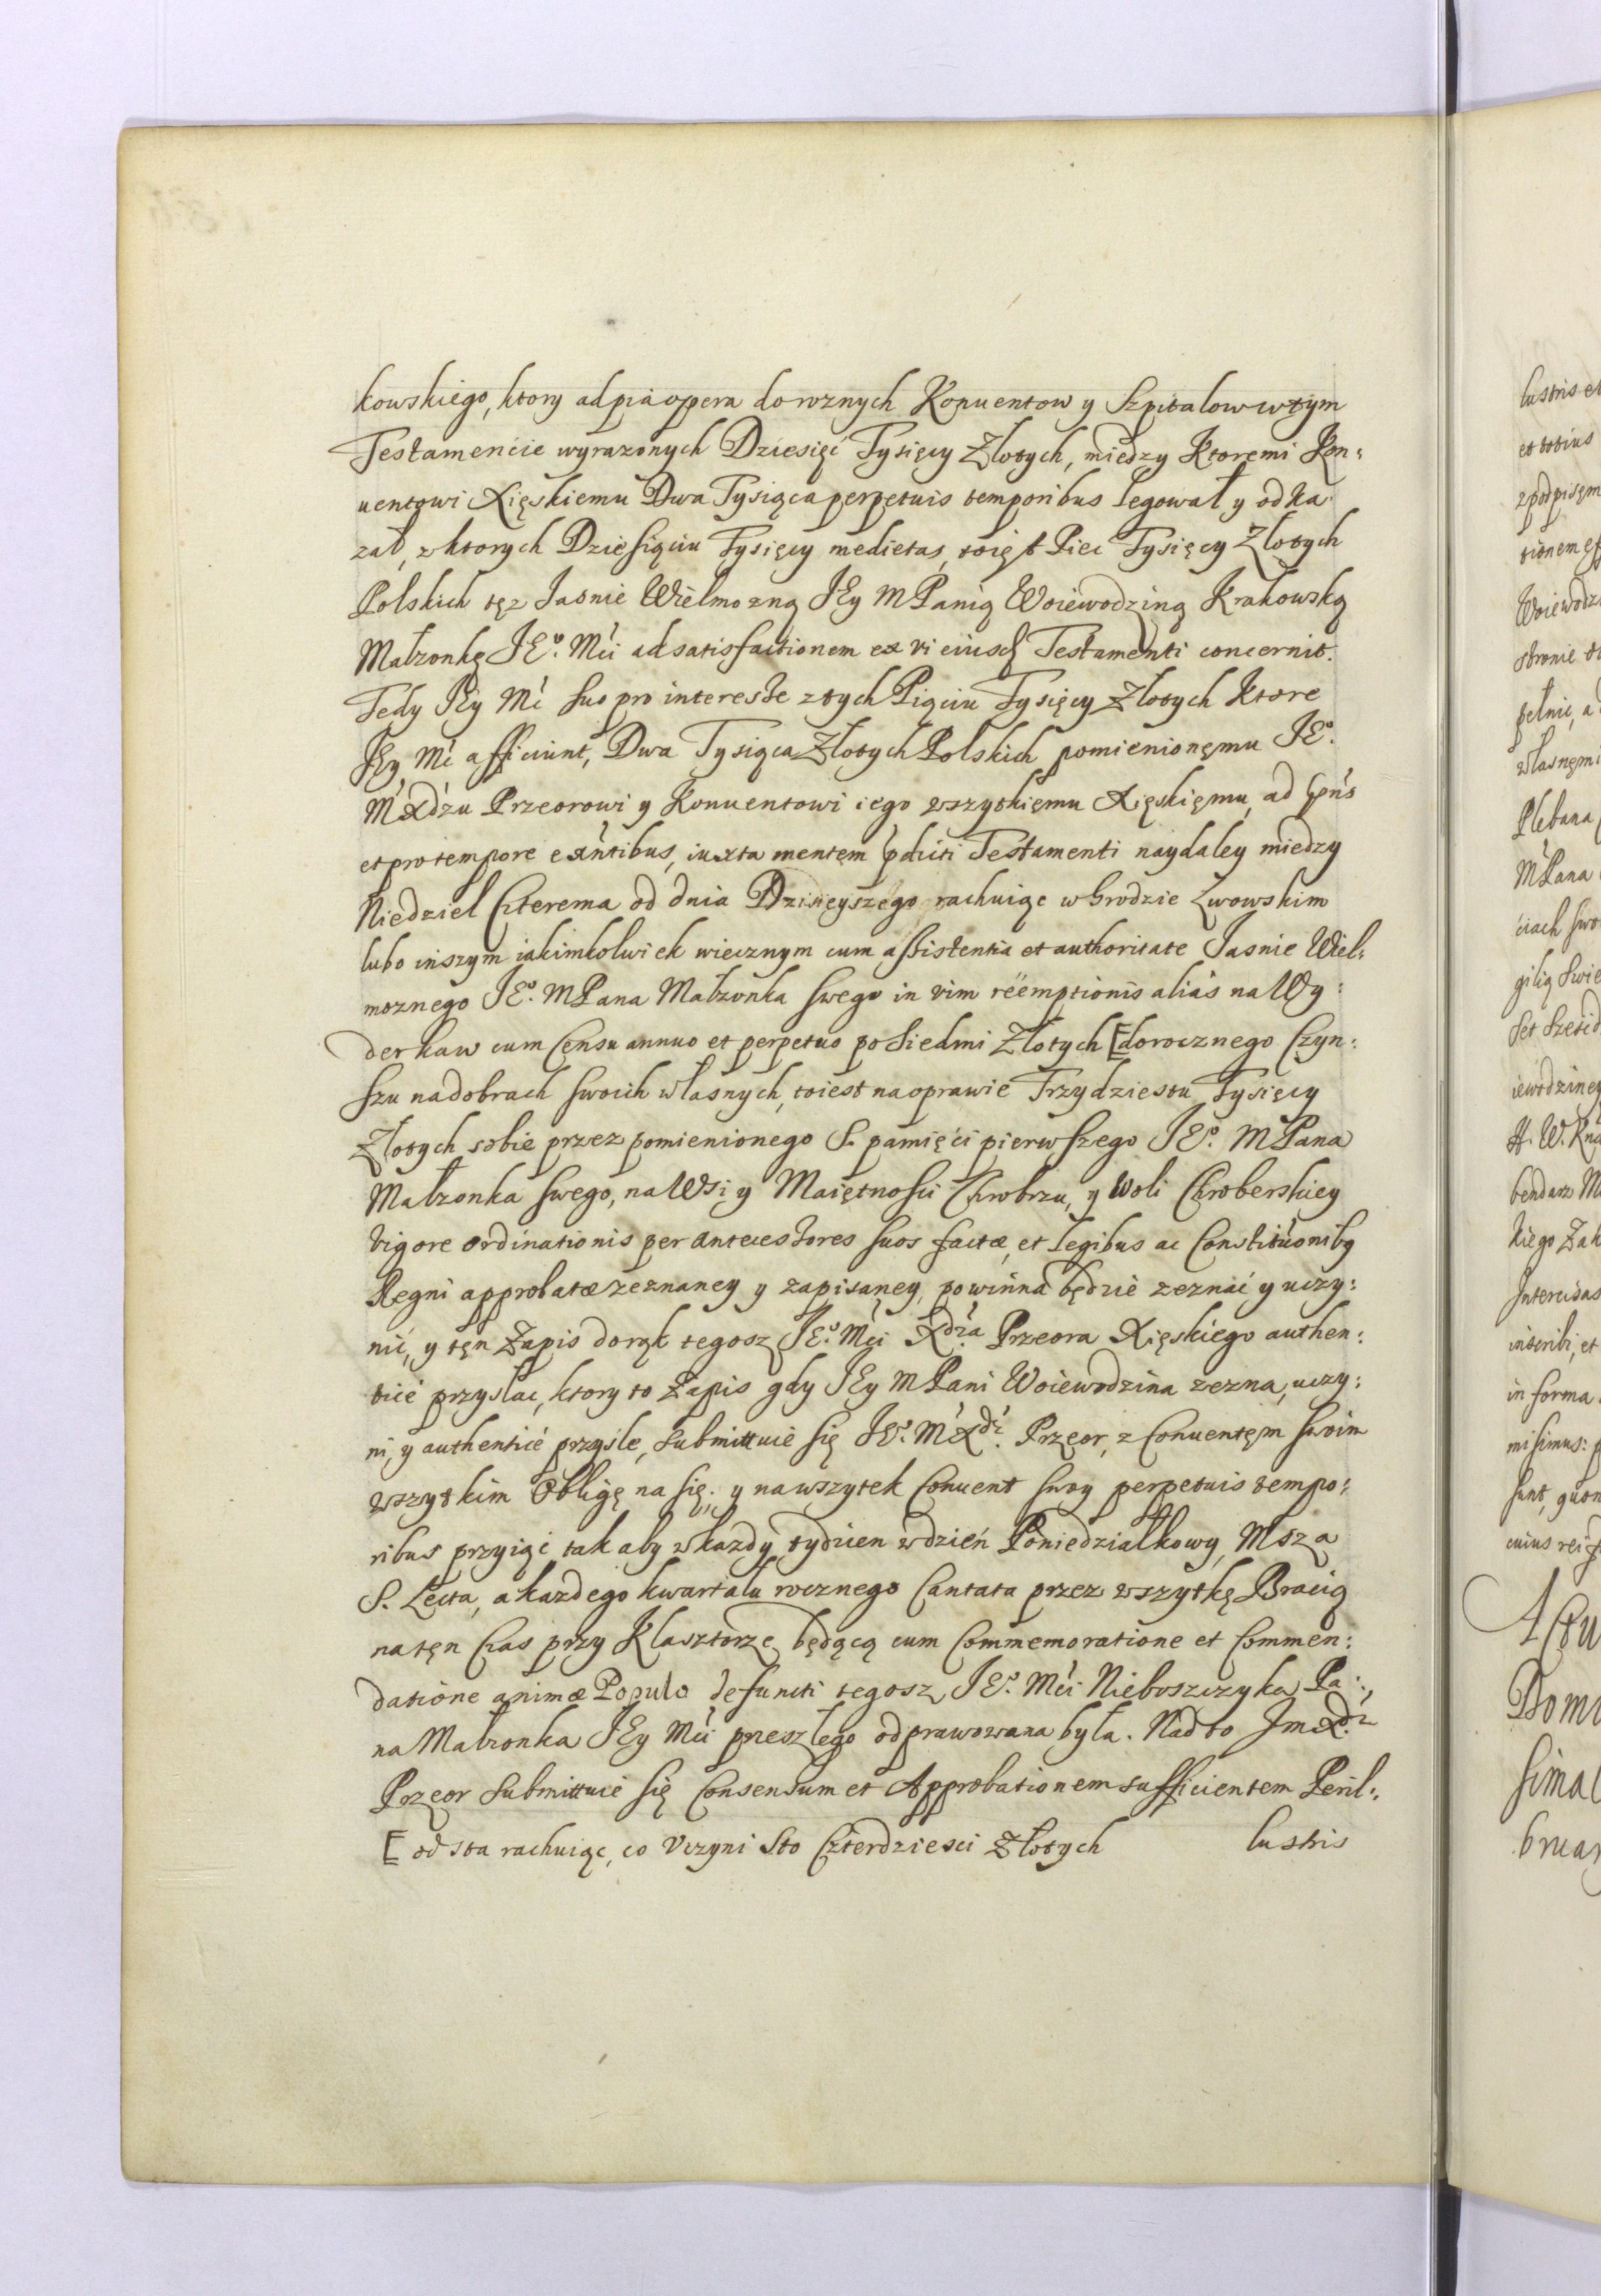 kowskiego, ktory ad pia opera do roznych Konuentow y Szpitalow w tym
Testamencie wyrazonych Dziesięć Tysięcy Złotych, między Ktoremi Kon:
uentowi Xięskiemu Dwa Tysiąca perpetuis temporibus legował y odka
zał, z ktorych Dziesiąciu Tysięcy medietas, toięst Piec Tysięcy Złotych
Polskich tęz Jasnie Wielmozną JEy MPanią Woiewodziną Krakowską
Małzonkę JEº. Mći ad satisfactionem ex vi eiusd Testamenti concernit.
Tedy JEy Mć suo pro interesse z tych Piąciu Tysięcy Złotych Ktore
JEy Mć afficiunt, Dwa Tysiąca Złotych Polskich pomienionęmu JEº.
MXdzu Przeorowi y Konuentowi iego wszytkięmu Xięskięmu, ad pńs
et pro tempore exńtibus, iuxta mentęm pdicti Testamenti naydaley miedzy
Niedziel Czterema od dnia Dzisieyszego rachuiąc w Grodzie Lwowskim
lubo inszym iakimkolwiek wiecznym cum assistentia et authoritate Jasnie Wiel:
moznego JEº. MPana Małzonka swego in vim reëmptionis alias na Wy:
derkaw cum Censu annuo et perpetuo po Siedmi Złotych [dorocznego Czyn:
szu na dobrach swoich własnych, toiest na oprawie Trzydziestu Tysięcy
Złotych sobie przez pomienionego S. pamięci pierwszego JEº. MPana
Małzonka swego, na Wsi y Maiętnosci Chrobrzu, y Woli Chroberskiey
vigore ordinationis per Antecessores suos factæ, et legibus ac Constitúonibq
Regni approbatæ zeznaney y zapisaney, powinna będzie zeznać y uczy:
nić, y tęn Zapis do rąk tegosz JEº. Mći Xdza Przeora Xięskiego authen:
ticè przysłac, ktory to Zapis gdy JEy MPani Woiewodzina zezna, uczy:
ni, y authenticè przysle, submittuie się JEº. MXdz. Przęor, z Conuentęm swoim
wszytkim Obligę na się y na wszytek Conuent swoy perpetuis tempo:
ribus przyiąć tak aby w kazdy tydzien w dzień Poniedziałkowy, Msza
S. Lecta, a kazdego kwartału rocznego Cantata przez wszytkę Bracią
na tęn Czas przy Klasztorze będącą cum Commemoratione et Commen:
datione animæ Populo defuncti tegosz JEº. Mći Nieboszczyka Pa:
na Małzonka JEy Mći przeszłego odprawowana była. Nad to JmXdz
Przęor submittuie się Consensum et Approbationem sufficientem Peril:
[ od sta rachuiąc, co Vczyni Sto Czterdziesci Złotych lustris
lustris et
et totius
z podpisęm
tionem
Woiewodz
stronie
pełnic, a
własnęmi
Plebana
MPana
ciach swo
gilią Swie
set szesc
iewodziney
H. W. Kna
bendarz M
kiego Zak
Intercidas
inscribi, et
in forma
misimus:
sunt, quon
cuius rei
Actu
Domi
sima
bruar